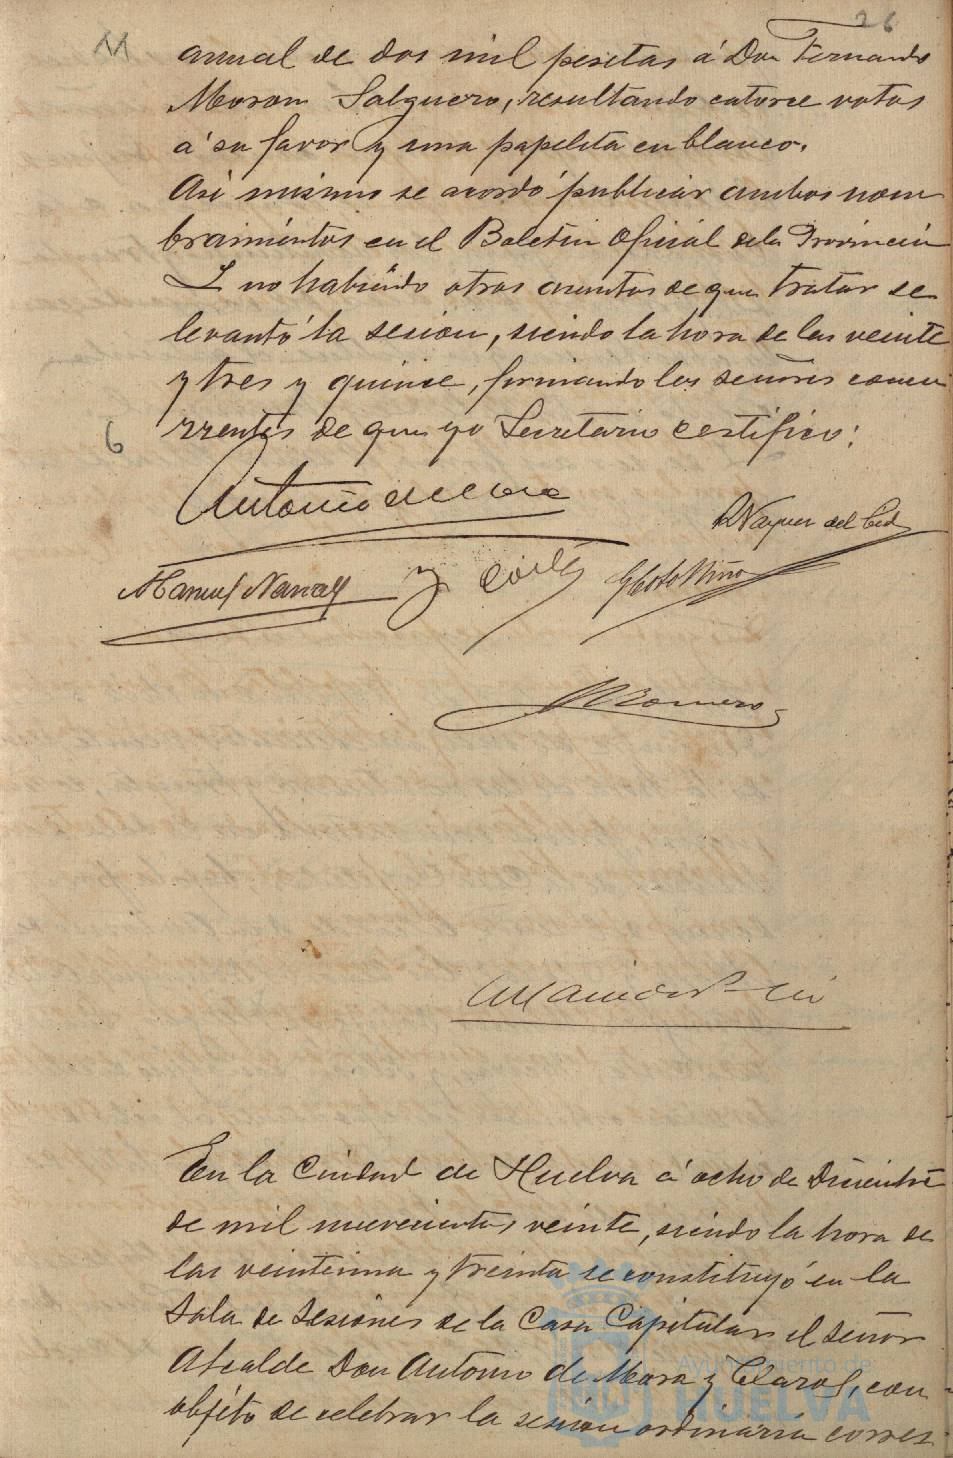 26
anual de dos mil pesetas á Don Fernando
Moron Salguero, resultando catorce votos
á su favor y una papeleta en blanco.
Asi mismo se acordó publicar ambos nom
bramientos en el Boletin Oficial de la Provincia
Y no habiendo otros asuntos de que tratar se
levantó la sesion, siendo la hora de las veinte
y tres y quince, firmando los señores concu
rrentes de que yo Secretario certifico:
6
Antonio de Mora
Vazquez del Cid
Manuel Navarro
y Cortés
Soto Niño
M Romero
En la Ciudad de Huelva á ocho de Diciembre
de mil novecientos veinte, siendo la hora de
las veintiuna y treinta se constituyó en la
Sala de Sesiones de la Casa Capitular el señor
Alcalde Don Antonio de Mora y Claros, con
objeto de celebrar la sesion ordinaria corres
Ayuntamiento de
HUELVA